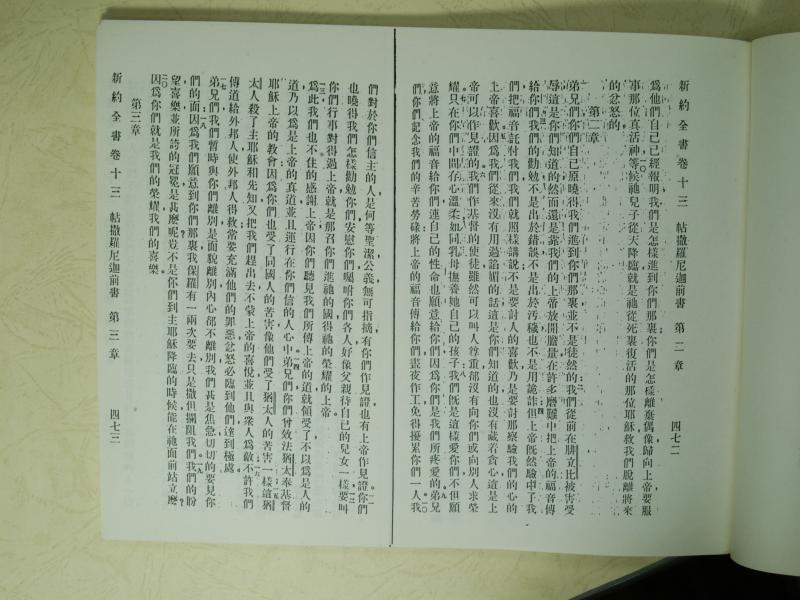 新約全書卷十三　帖撒羅尼迦前書　第二章　四七二
爲他們自己已經報明我們是怎樣進到你們那裏你們是怎樣離棄偶像歸向上帝要服
事那位眞活神等候祂兒子從天降臨就是祂從死裏復活的那位耶穌救我們脫離將來
的忿怒的
第二章
弟兄們你們自己原曉得我們進到你們那裏並不是徒然的我們從前在腓立比被害受
辱這是你們知道的然而還是靠我們的上帝放開膽量在許多磨難中把上帝的福音傳
給你們我們的勸勉不是出於錯誤不是出於汚穢也不是用詭詐但上帝旣然驗中了我
們把福音託付我們我們就照樣講說不是要討人的喜歡乃是要討那察驗我們的心的
上帝喜歡因爲我們從來沒有用過諂媚的話這是你們知道的也沒有藏着貪心這是上
帝可以作見證的我們作基督的使徒雖然可以叫人尊重卻沒有向你們或向別人求榮
耀只在你們中間存心溫柔如同乳母撫養她自己的孩子我們旣是這樣愛你們不但願
意將上帝的福音給你們連自己的性命也願意給你們因爲你們是我們所疼愛的弟兄
們你們記念我們的辛苦勞碌將上帝的福音傳給你們晝夜作工免得擾累你們一人我
們對於你們信主的人是何等聖潔公義無可指摘有你們作見證也有上帝作見證你們
也曉得我們怎樣勸勉你們安慰你們囑咐你們各人好像父親待自己的兒女一樣要叫
你們行事對得過上帝就是那召你們進祂的國得祂的榮耀的上帝
爲此我們也不住的感謝上帝因你們聽見我們所傳上帝的道就領受了不以爲是人的
道乃以爲是上帝的眞道並且運行在你們信的人心中弟兄們你們曾效法猶太奉基督
耶穌上帝的教會因爲你們也受了同國人的苦害像他們受了猶太人的苦害一樣這猶
太人殺了主耶穌和先知又把我們趕出去不蒙上帝的喜悅並且與衆人爲敵不許我們
傳道給外邦人使外邦人得救常要充滿他們的罪惡忿怒必臨到他們達到極處
弟兄們我們暫時與你們離別是面貌離別內心卻不離別我們甚是焦急切切的要見你
們的面因爲我們願意到你們那裏我保羅有一兩次要去只是撒但攔阻我們我們的盼
望喜樂並所誇的冠冕是甚麽呢豈不是你們到主耶穌降臨的時候能在祂面前站立麽
因爲你們就是我們的榮耀我們的喜樂
第三章
新約全書卷十三　帖撒羅尼迦前書　第三章　四七三